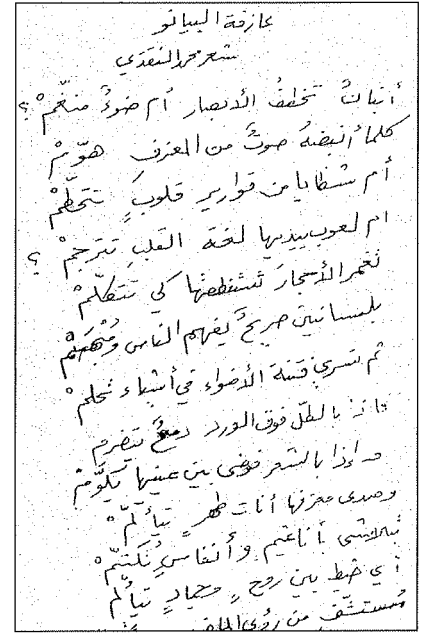 عازفة البيانو
شعر محمد النقدي
أبنانٌ تخطفُ الأبصار أم ضوءٌ منغّمْ ؟
كلما أنبضهُ صوتٌ من المعزفِ هوّمْ
أم شظايا من قوارير قلوبٍ تتحطّمْ
أم لعوب بيديها لغة القلبِ تترجمْ ؟
تغمر الأحجارَ تستنطقها كي تتكلّمْ
بلسانين صريحٌ يفهم الناس ومُبْهَمْ
ثم تسري فتنة الأضواء في أشياء تحلمْ
فإذا بالطلّ فوق الورد دمعٌ يتضرم
وإذا بالشعر فوضى بين عينيها تكوّمْ
وصدى معزفها أنات طهرٍ تتألّمْ
تتلاشى بأناغيم وأنفاسٍ تُكتّمْ
أي خيط بين روحٍ وجمادٍ يتألم
مُستشفّ من رؤى